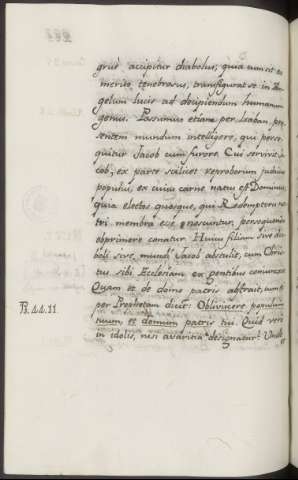 grus accipitur diabolus, quia cum sit ex
merito tenebrosus, transfigurat se in An-
gelum lucis ad decipiendum humanum
genus. Possumus etiam per Laban, prę-
sentem mundum intelligere, qui perse-
quitur Jacob cum furore. Cui servivit Ja-
cob, ex parte scilicet reproborum judaici
populi, ex cuius carne natus est Dominus,
quia electos quosque, qui Redemptoris nos-
tri membra esse noscuntur, persequendo
obprimere conatur. Huius filiam sive dia-
boli sive mundi Jacob abstulit, cum Chris-
tus sibi Ecclesiam ex gentibus conjunxit.
Quam et de domo patris abstrait, cum ei
per Prophetam dicit: Obliviscere populum
Ps. 44. 11.
tuum, et domum patris tui. Quid vero
in idolis, nisi avaritia designatur? Unde